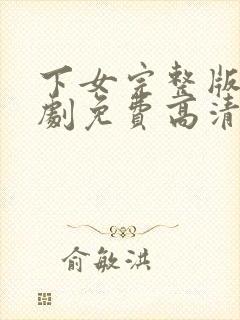 下女完整版
劇免費高清
俞敏洪